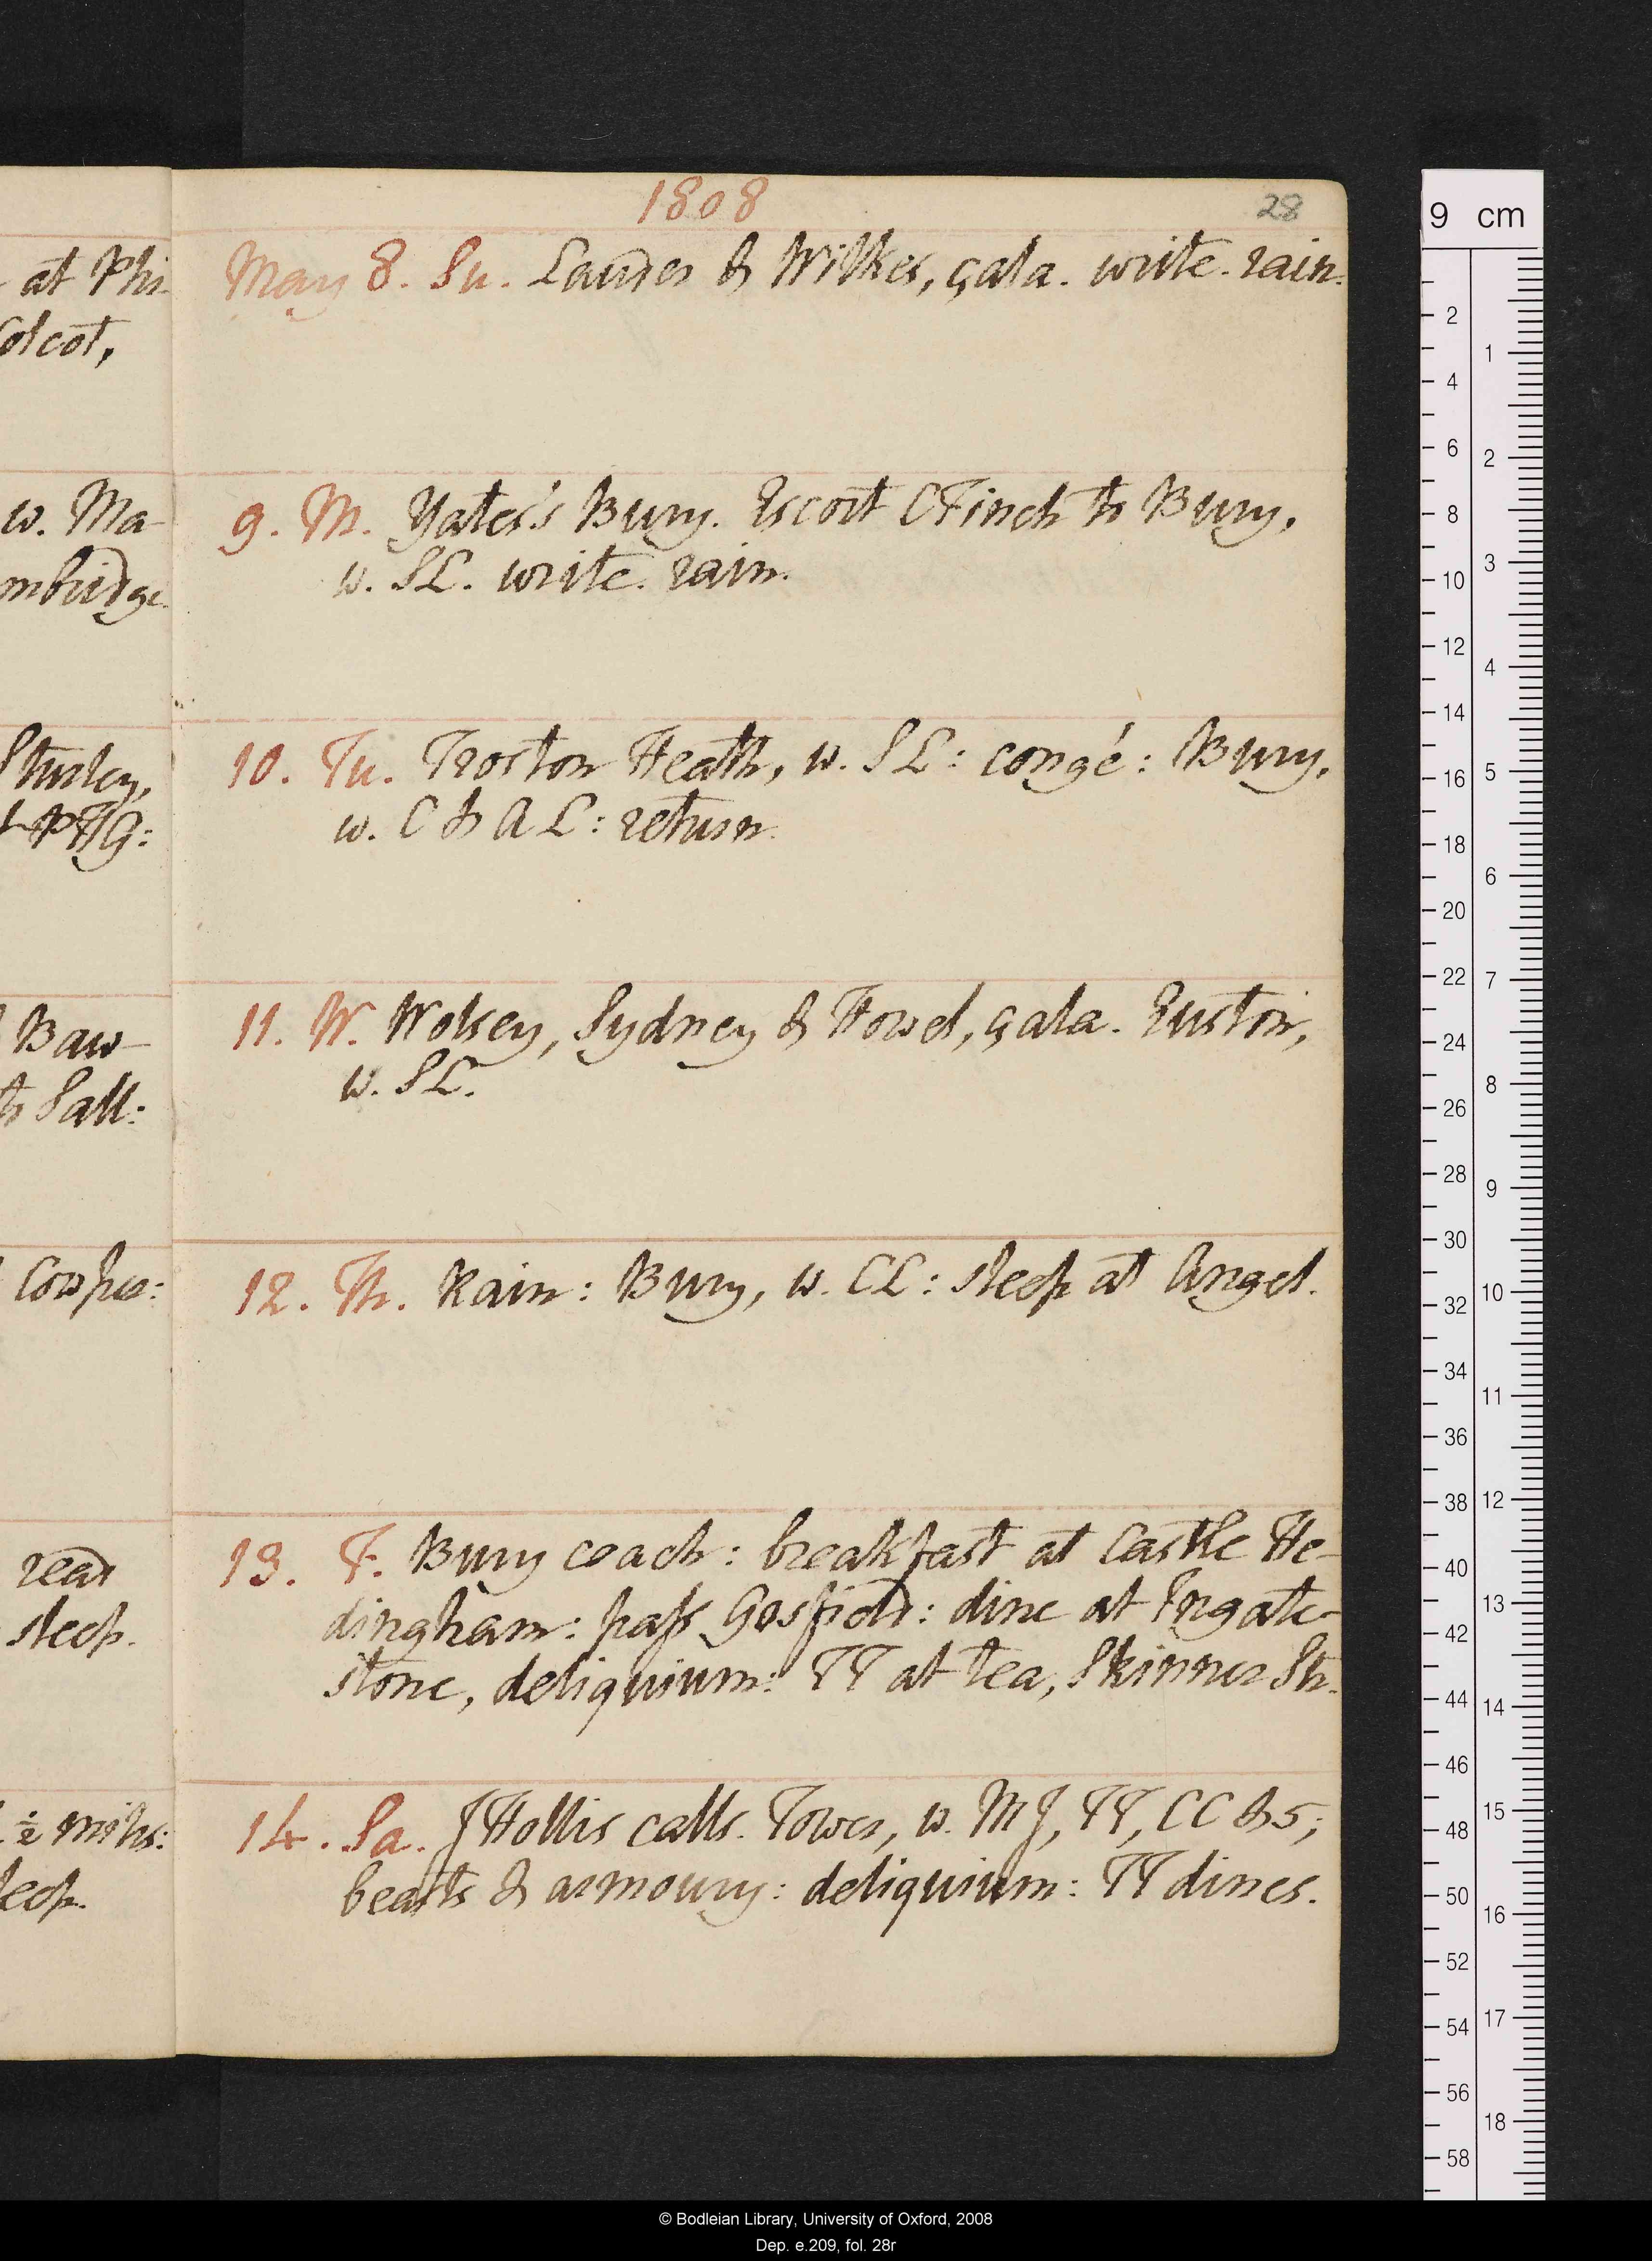 1808
28
May 8. Su. Lauder & Wilkes, çala. write. rain.
9. M. Yates's Bury. Escort C Finch to Bury,
w. SL. write. rain.
10. Tu. Troston Heath, w. SL: congé: Bury,
w. C & A L: return.
11. W. Wolsey, Sydney & Howel, çala. Euston,
w. SL.
12. Th. Rain: Bury, w. CL: sleep at Angel.
13. F. Bury coach: breakfast at Castle He-
dingham: pass Gosfield: dine at Ingate-
stone, deliquium: TT at tea, Skinner St.
14. Sa. J Hollis calls. Tower, w. MJ, TT, CC & 5;
beasts & armoury: deliquium: TT dines.
at Phi-
olcot,
w. Ma-
mbridge.
HG:
Baw-
to Sall:
Cowper:
read
sleep.
½ miles:
eep.
9 cm
2
4
6
8
10
12
14
16
18
20
22
24
26
28
30
32
34
36
38
40
42
44
46
48
50
52
54
56
58
1
2
3
4
5
6
7
8
9
10
11
12
13
14
15
16
17
18
© Bodleian Library, University of Oxford, 2008
Dep. e.209, fol. 28r